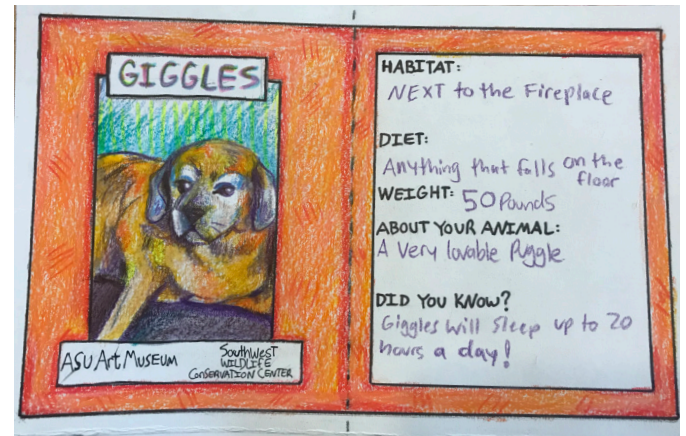 GIGGLES
ASU Art MUSEUM
SOUTHWEST
WILDLIFE
CONSERVATION CENTER
HABITAT:
NEXT to the Fireplace
DIET:
Anything that falls on the
floor
WEIGHT: 50 Pounds
ABOUT YOUR ANIMAL:
A Very lovable Puggle
DID YOU KNOW?
Giggles will sleep up to 20
hours a day!